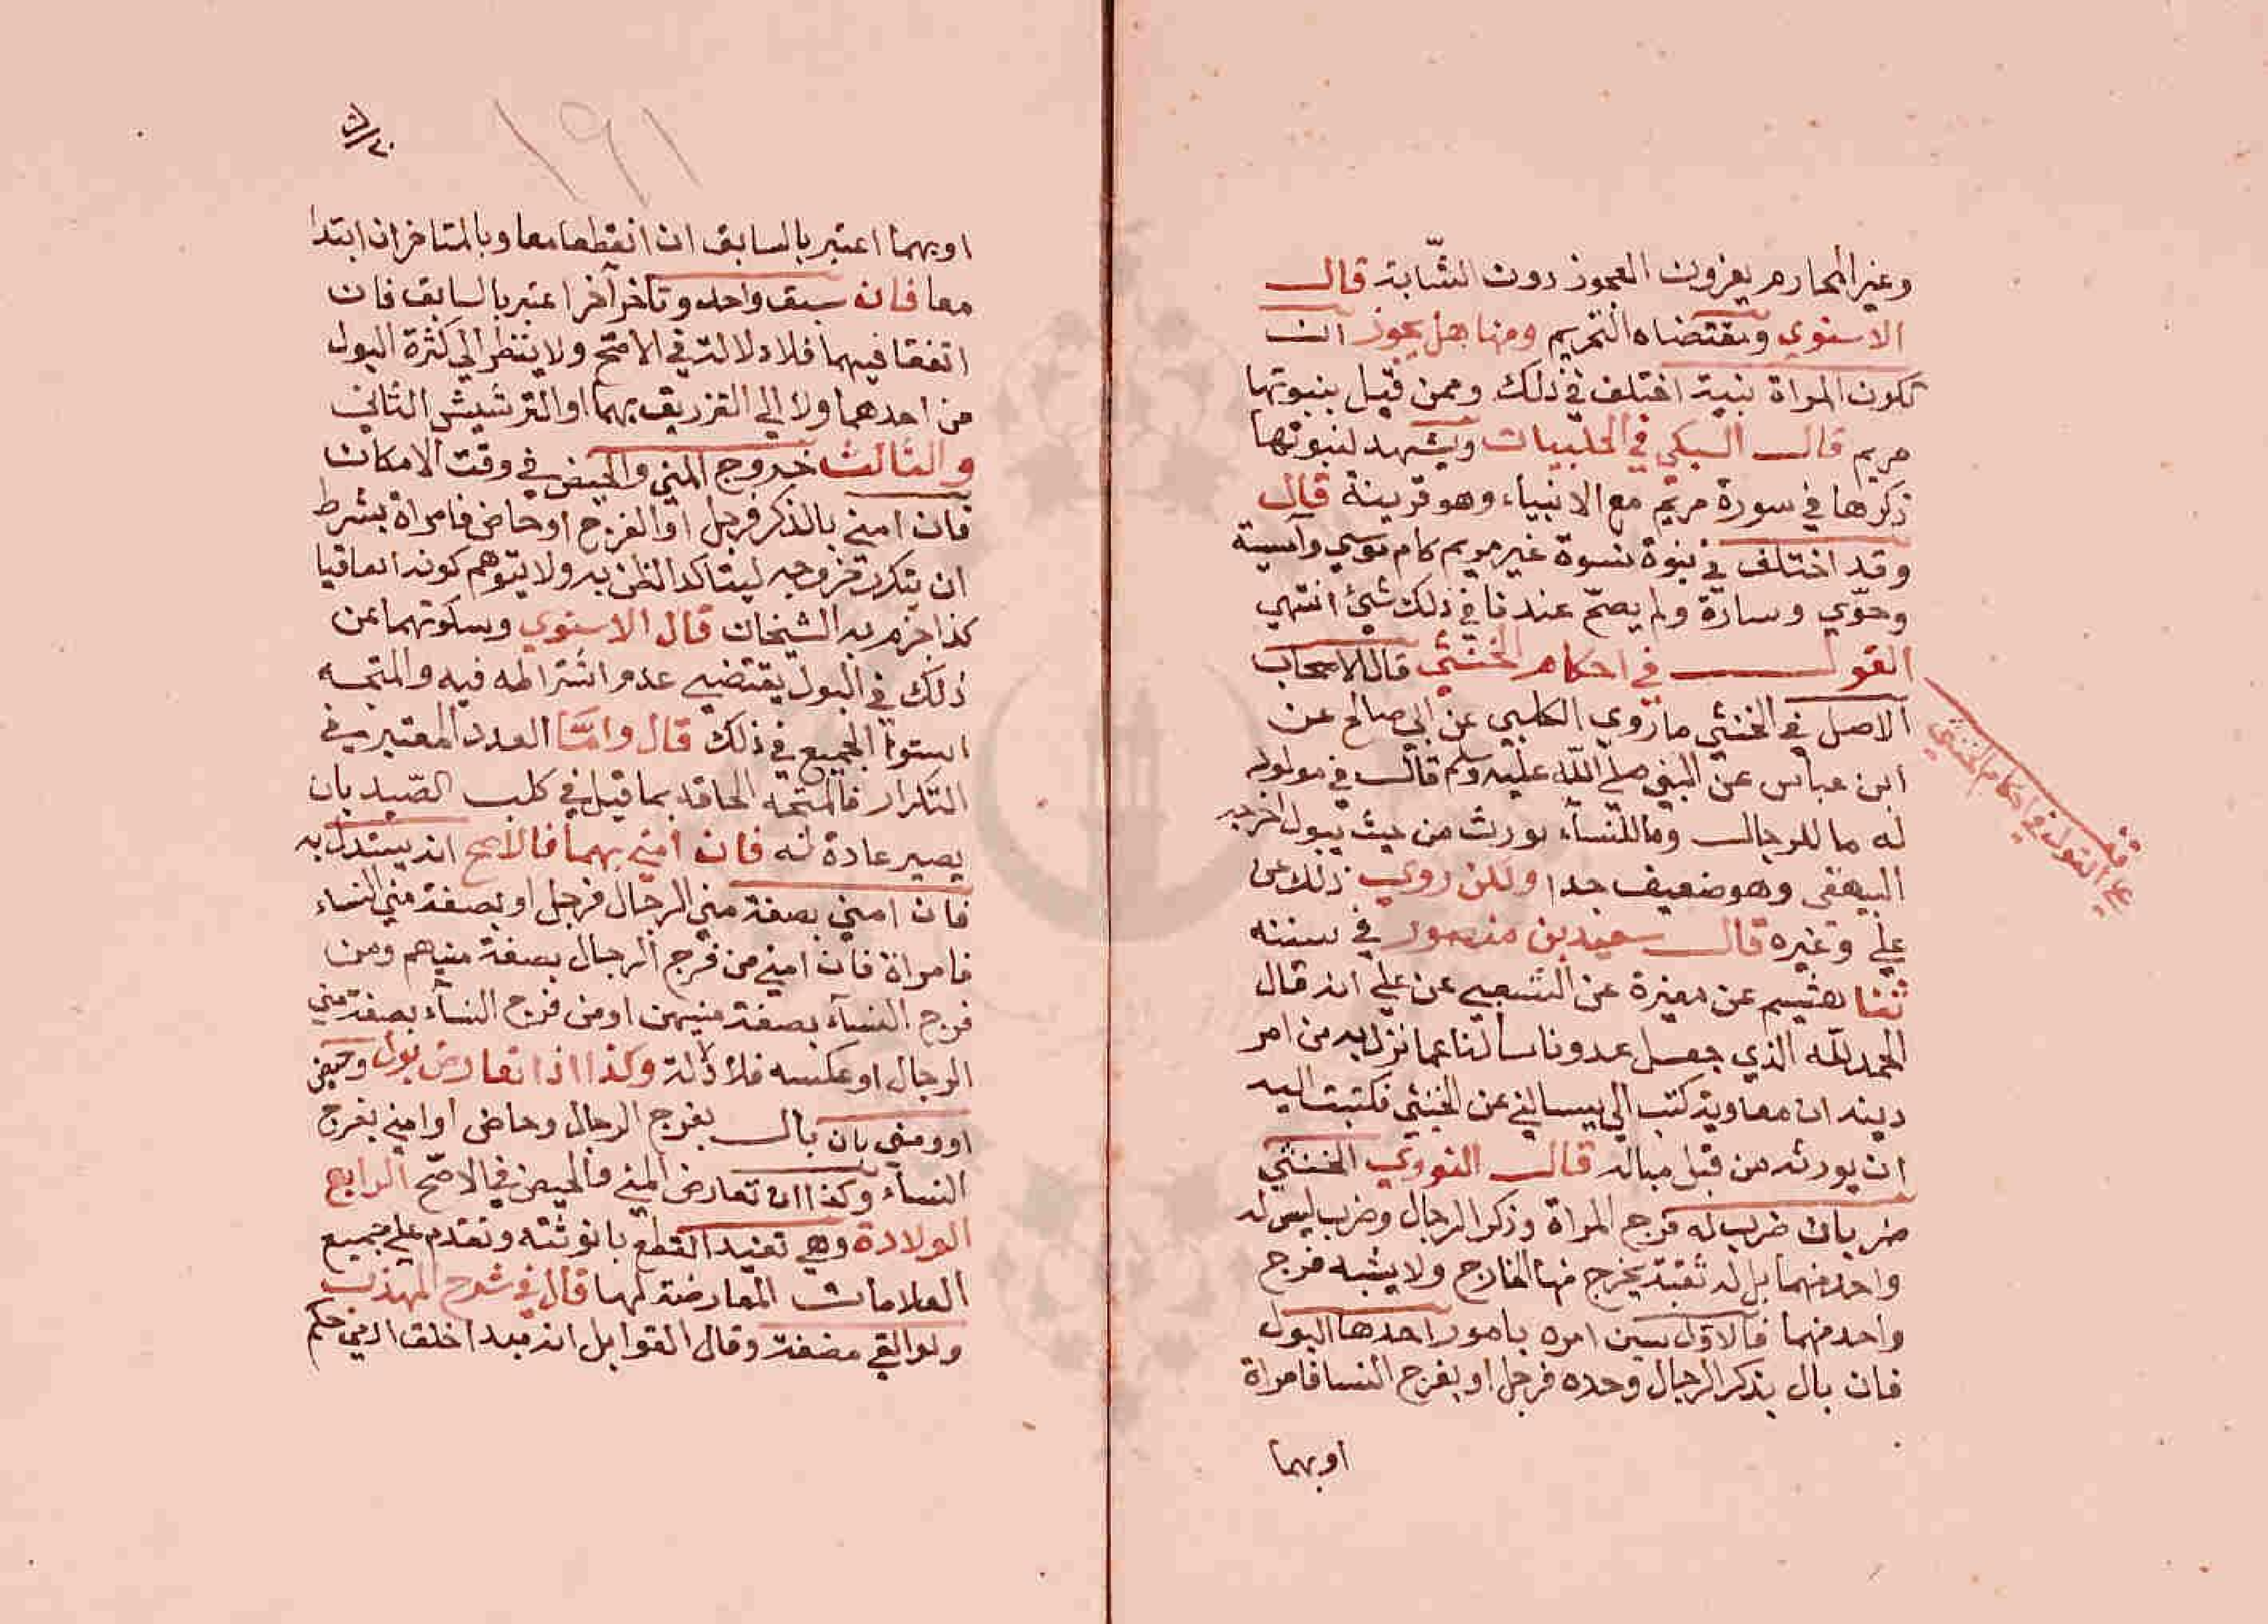 وغير المحارم يعزون العجوز دون الشّابة قال
الاسنوي ومقتضاه التحريم ومنها هل يجوز ان
تكون المراة نبية اختلف في ذلك وممن قيل بنبوتها
مريم قال السبكي في الحلبيات ويشهد لنبوتها
ذكرها في سورة مريم مع الانبياء وهو قرينة قال
وقد اختلف في نبوة نسوة غير مريم كام موسي وآسية
وحوّي وسارة ولم يصحّ عندنا في ذلك شئ انتهي
القول في احكام الخنثي قال الاصحاب
الاصل في الخنثي ما روي الكلبي عن ابي صالح عن
ابن عباس عن النبي صلي اللّه عليه وسلم قال في مولود
له ما للرجال وما للنّسآء يورث من حيث يبول اخرجه
البيهقي وهو ضعيف جدا ولكن روي ذلك عن
علي وغيره قال سعيد بن منصور في سننه
ثنا هشيم عن مغيرة عن الشعبي عن علي انه قال
الحمد للّه الذي جعل عدونا سألنا عما نزل به من امر
دينه ان معاوية كتب الي يسالني عن الخنثي فكتبت اليه
ان يورثه من قبل مباله قال النووي الخنثي
ضربان ضرب له فرج المراة وذكر الرجال وضرب ليس له
واحد منهما بل له ثقبة يخرج منها الخارج ولا يشبه فرج
واحد منهما فالاول يتبين امره بامور احدها البول
فان بال بذكر الرجال وحده فرجل او بفرج النسا فامراة
او بهما
قف علي القول في احكام الخنثي
١٩١
او بهما اعتبر بالسابق ان انقطعا معا وبالمتاخر ان ابتدا
معا فان سبق واحد وتاخر آخر اعتبر بالسابق فان
اتفقا فيهما فلا دلالة في الاصح ولا ينظر الي كثرة البول
من احدهما ولا الي التزريق بهما او الترشيش الثاني
والثالث خروج المني والحيض في وقت الامكان
فان امني بالذكر فرجل او الفرج او حاض فامراة بشرط
ان يتكرر خروجه ليتاكد الظن به ولا يتوهم كونه اتفاقيا
كذا جزم به الشيخان قال الاسنوي وسكوتهما عن
ذلك في البول يقتضي عدم اشتراطه فيه والمتجه
استوآ الجميع في ذلك قال وامّا العدد المعتبر في
التكرار فالمتجه الحاقه بما قيل في كلب الصّيد بان
يصير عادة له فان امني بهما فالاصح انه يستدل به
فان امني بصفة مني الرجال فرجل او بصفة مني النساء
فامراة فان امني من فرج الرجال بصفة منيهم ومن
فرج النسآء بصفة منيهن او من فرج النسآء بصفة مني
الرجال او عكسه فلا دلالة وكذا اذا تعارض بول وحيض
او ومني بان بال بفرج الرجال وحاض او امني بفرج
النساء وكذا ان تعارض المني فالحيض في الاصّح الرابع
الولادة وهي تفيد القطع بانوثته وتقدم علي جميع
العلامات المعارضة لها قال في شرح المهذب
ولو القي مضغة وقال القوابل انه مبدا خلق ادمي حكم